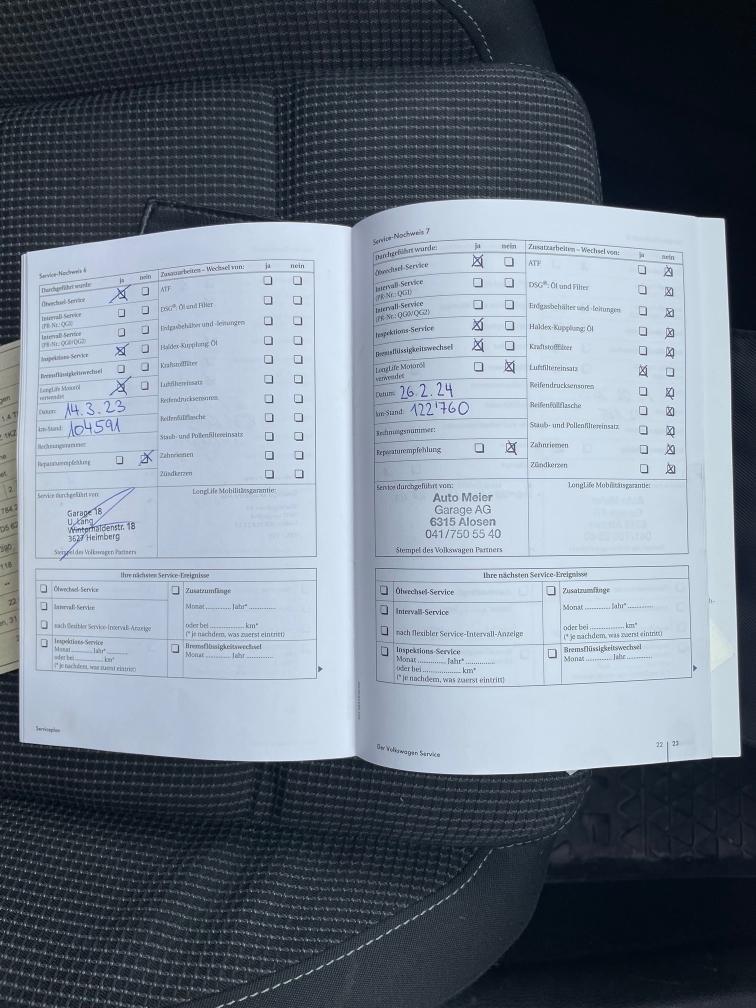 Service-Nachweis 6
Durchgeführt wurde: ja nein Zusatzarbeiten – Wechsel von: ja nein
Ölwechsel-Service
Intervall-Service
(PR-Nr.: QG1)
Intervall-Service
(PR-Nr.: QG0/QG2)
Inspektions-Service
Bremsflüssigkeitswechsel
LongLife Motoröl
verwendet
Datum: 14.3.23
km-Stand: 104591
Rechnungsnummer:
Reparaturempfehlung
ATF
DSG®: Öl und Filter
Erdgasbehälter und -leitungen
Haldex-Kupplung: Öl
Kraftstofffilter
Luftfiltereinsatz
Reifendrucksensoren
Reifenfüllflasche
Staub- und Pollenfiltereinsatz
Zahnriemen
Zündkerzen
Service durchgeführt von:
LongLife Mobilitätsgarantie:
Garage 18
U. Lang
Winterhaldenstr. 18
3627 Heimberg
Stempel des Volkswagen Partners
Ihre nächsten Service-Ereignisse
Ölwechsel-Service
Intervall-Service
nach flexibler Service-Intervall-Anzeige
Inspektions-Service
Monat .......... Jahr* ..........
oder bei .......... km*
(* je nachdem, was zuerst eintritt)
Zusatzumfänge
Monat .......... Jahr* ..........
oder bei .......... km*
(* je nachdem, was zuerst eintritt)
Bremsflüssigkeitswechsel
Monat .......... Jahr ..........
Serviceplan
Service-Nachweis 7
Durchgeführt wurde: ja nein Zusatzarbeiten – Wechsel von: ja nein
Ölwechsel-Service
Intervall-Service
(PR-Nr.: QG1)
Intervall-Service
(PR-Nr.: QG0/QG2)
Inspektions-Service
Bremsflüssigkeitswechsel
LongLife Motoröl
verwendet
Datum: 26.2.24
km-Stand: 122'760
Rechnungsnummer:
Reparaturempfehlung
ATF
DSG®: Öl und Filter
Erdgasbehälter und -leitungen
Haldex-Kupplung: Öl
Kraftstofffilter
Luftfiltereinsatz
Reifendrucksensoren
Reifenfüllflasche
Staub- und Pollenfiltereinsatz
Zahnriemen
Zündkerzen
Service durchgeführt von:
LongLife Mobilitätsgarantie:
Auto Meier
Garage AG
6315 Alosen
041/750 55 40
Stempel des Volkswagen Partners
Ihre nächsten Service-Ereignisse
Ölwechsel-Service
Intervall-Service
nach flexibler Service-Intervall-Anzeige
Inspektions-Service
Monat .......... Jahr* ..........
oder bei .......... km*
(* je nachdem, was zuerst eintritt)
Zusatzumfänge
Monat .......... Jahr* ..........
oder bei .......... km*
(* je nachdem, was zuerst eintritt)
Bremsflüssigkeitswechsel
Monat .......... Jahr ..........
Der Volkswagen Service
22 | 23